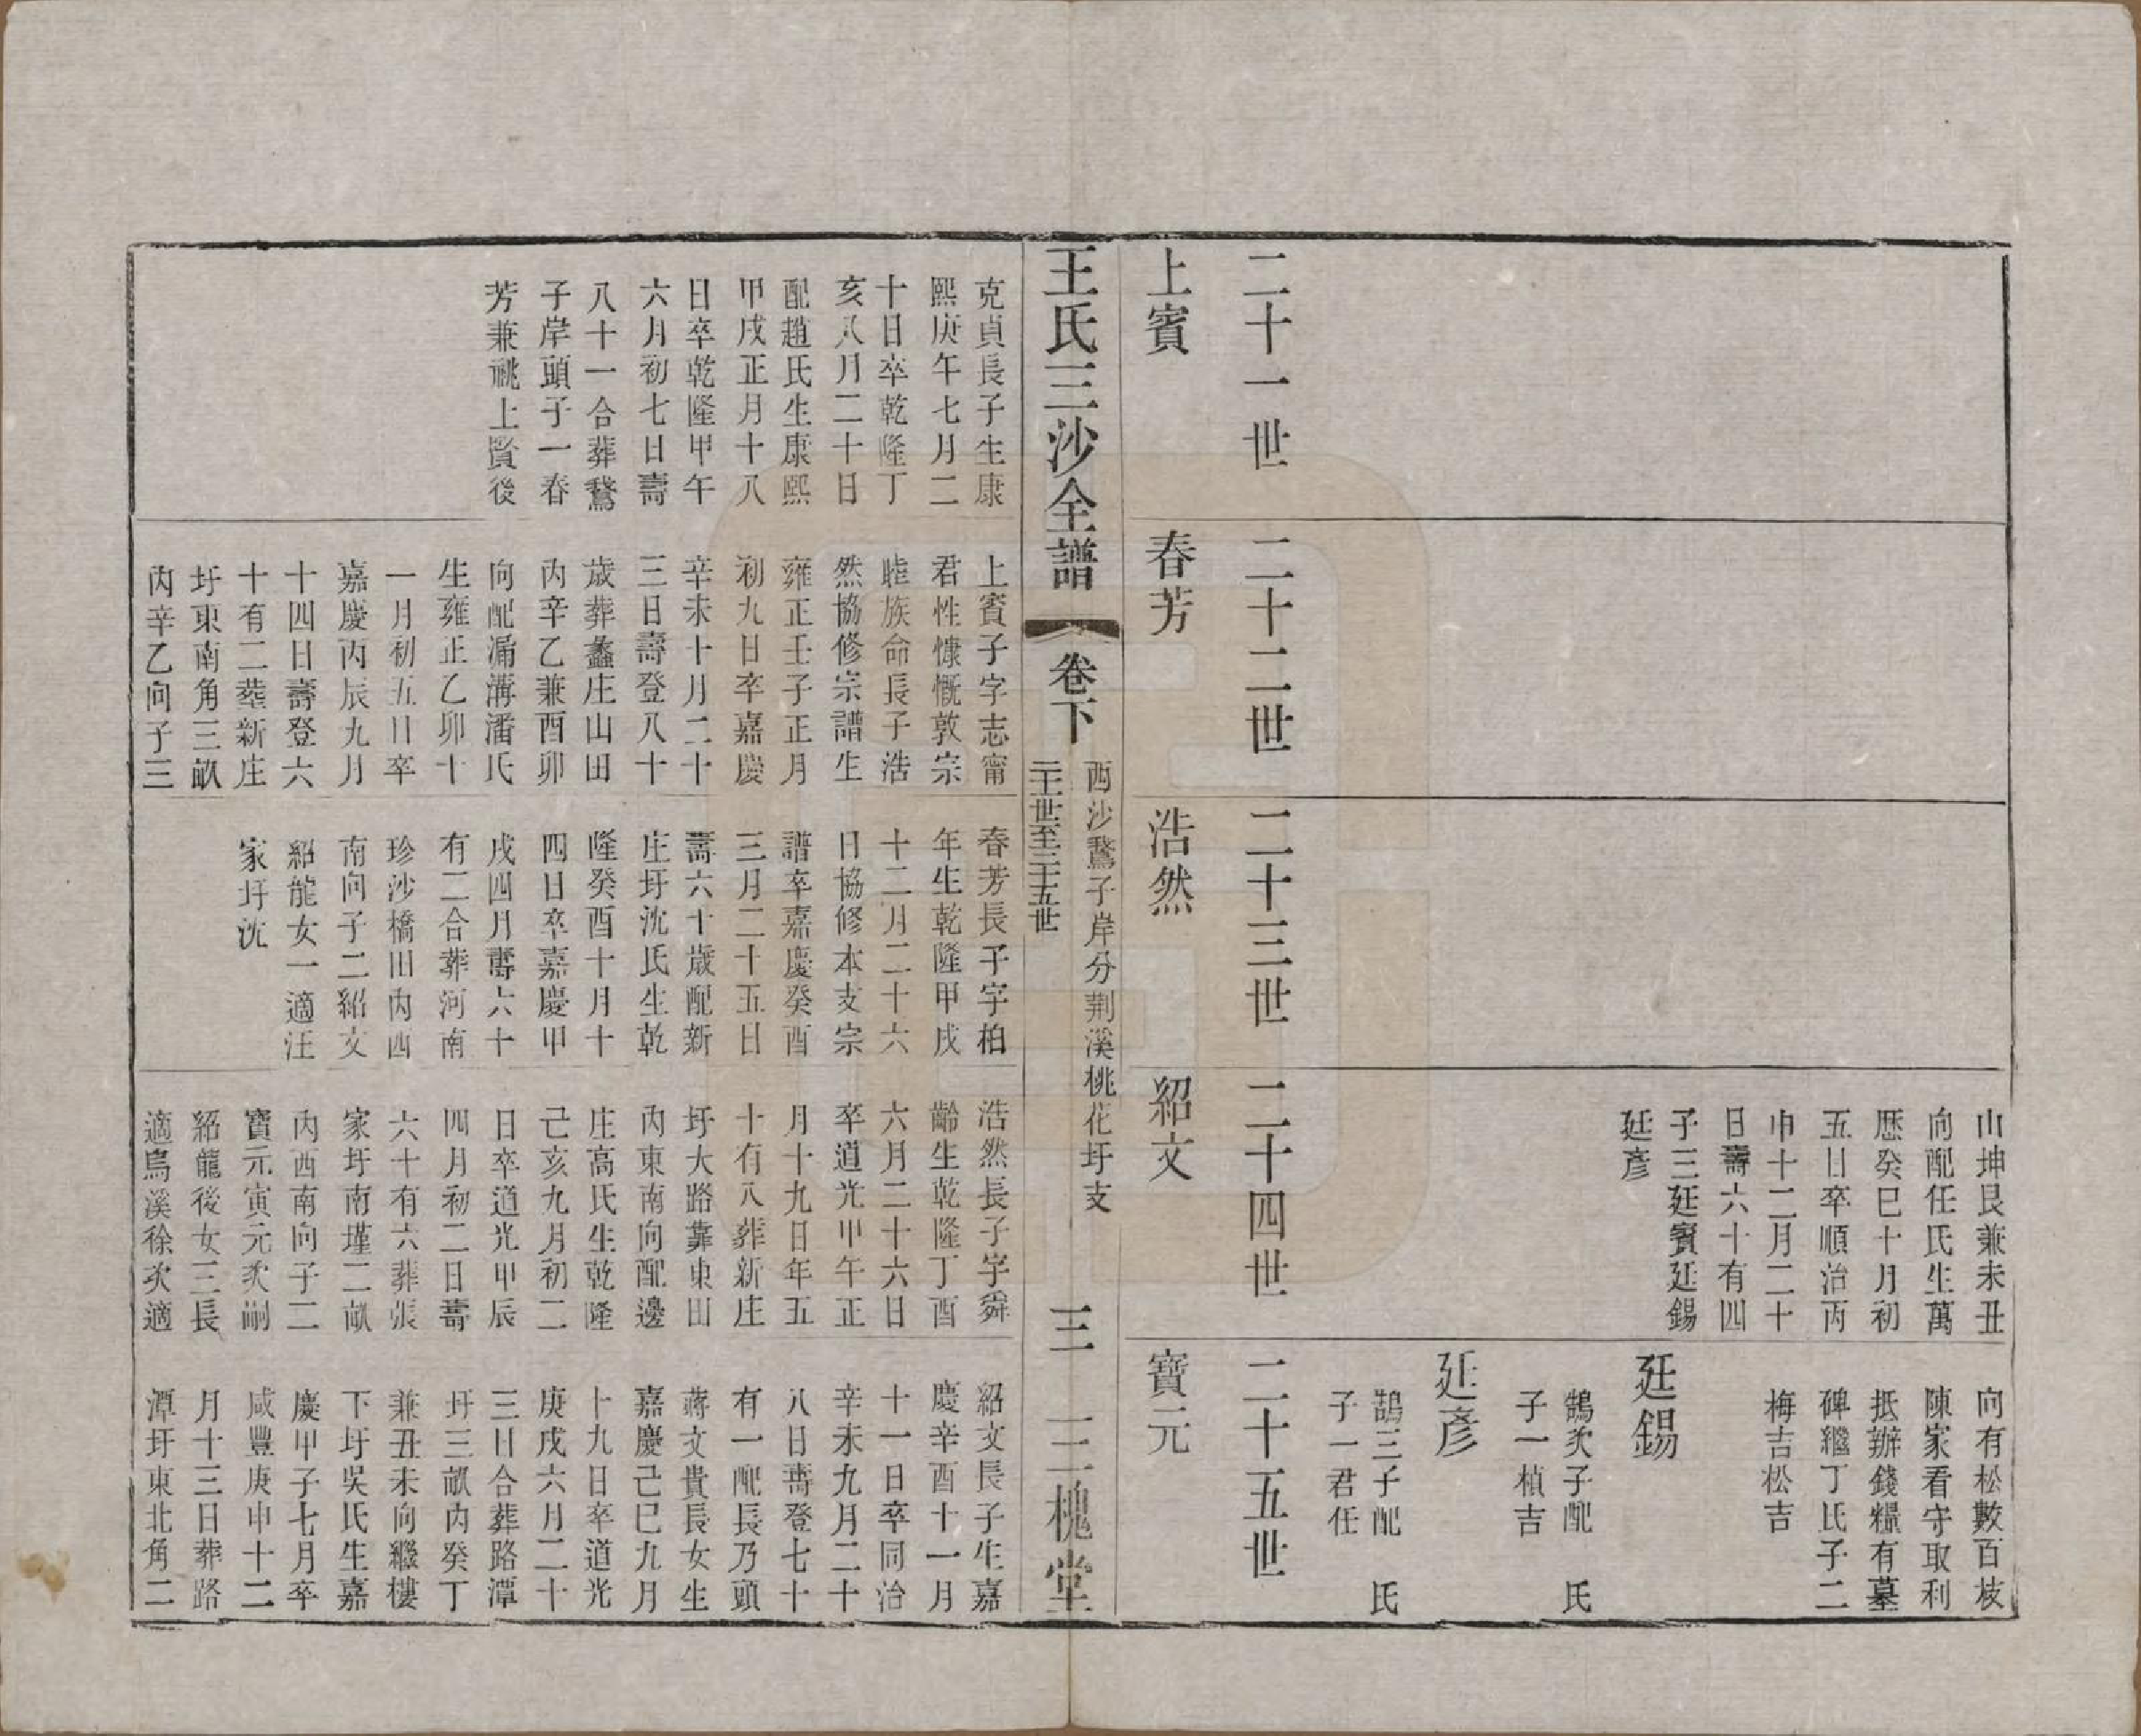 山坤艮兼未丑
向配任氏生萬
歷癸巳十月初
五日卒順治丙
申十二月二十
日壽六十有四
子三廷賓廷錫
廷彥
向有松數百枝
陳家看守取利
抵辦錢糧有墓
碑繼丁氏子二
梅吉松吉
廷錫
鵠次子配 氏
子一楨吉
廷彥
鵠三子配 氏
子一君任
二十一世
二十二世
二十三世
二十四世
二十五世
上賓
春芳
浩然
紹文
寶元
王氏三沙全譜
卷下
西沙鶖子岸分荆溪桃花圩支
二十一世至二十五世
三
三槐堂
克貞長子生康
熙庚午七月二
十日卒乾隆丁
亥八月二十日
配趙氏生康熙
甲戌正月十八
日卒乾隆甲午
六月初七日壽
八十一合葬鶖
子岸頭子一春
芳兼祧上賢後
上賓子字志甯
君性慷慨敦宗
睦族命長子浩
然協修宗譜生
雍正壬子正月
初九日卒嘉慶
辛未十月二十
三日壽登八十
歲葬蠡庄山田
內辛乙兼酉卯
向配漏溝潘氏
生雍正乙卯十
一月初五日卒
嘉慶丙辰九月
十四日壽登六
十有二葬新庄
圩東南角三畝
丙辛乙向子三
春芳長子字柏
年生乾隆甲戌
十二月二十六
日協修本支宗
譜卒嘉慶癸酉
三月二十五日
壽六十歲配新
庄圩沈氏生乾
隆癸酉十月十
四日卒嘉慶甲
戌四月壽六十
有二合葬河南
珍沙橋田內西
南向子二紹文
紹龍女一適汪
家圩沈
浩然長子字舜
齡生乾隆丁酉
六月二十六日
卒道光甲午正
月十九日年五
十有八葬新庄
圩大路靠東田
內東南向配邊
庄高氏生乾隆
己亥九月初二
日卒道光甲辰
四月初二日壽
六十有六葬張
家圩南墐二畝
內酉南向子二
寶元寅元次嗣
紹龍後女三長
適烏溪徐次適
紹文長子生嘉
慶辛酉十一月
十一日卒同治
辛未九月二十
八日壽登七十
有一配長乃頭
蔣文貴長女生
嘉慶己巳九月
十九日卒道光
庚戌六月二十
三日合葬路潭
圩三畝內癸丁
兼丑未向繼樓
下圩吳氏生嘉
慶甲子七月卒
咸豐庚申十二
月十三日葬路
潭圩東北角二